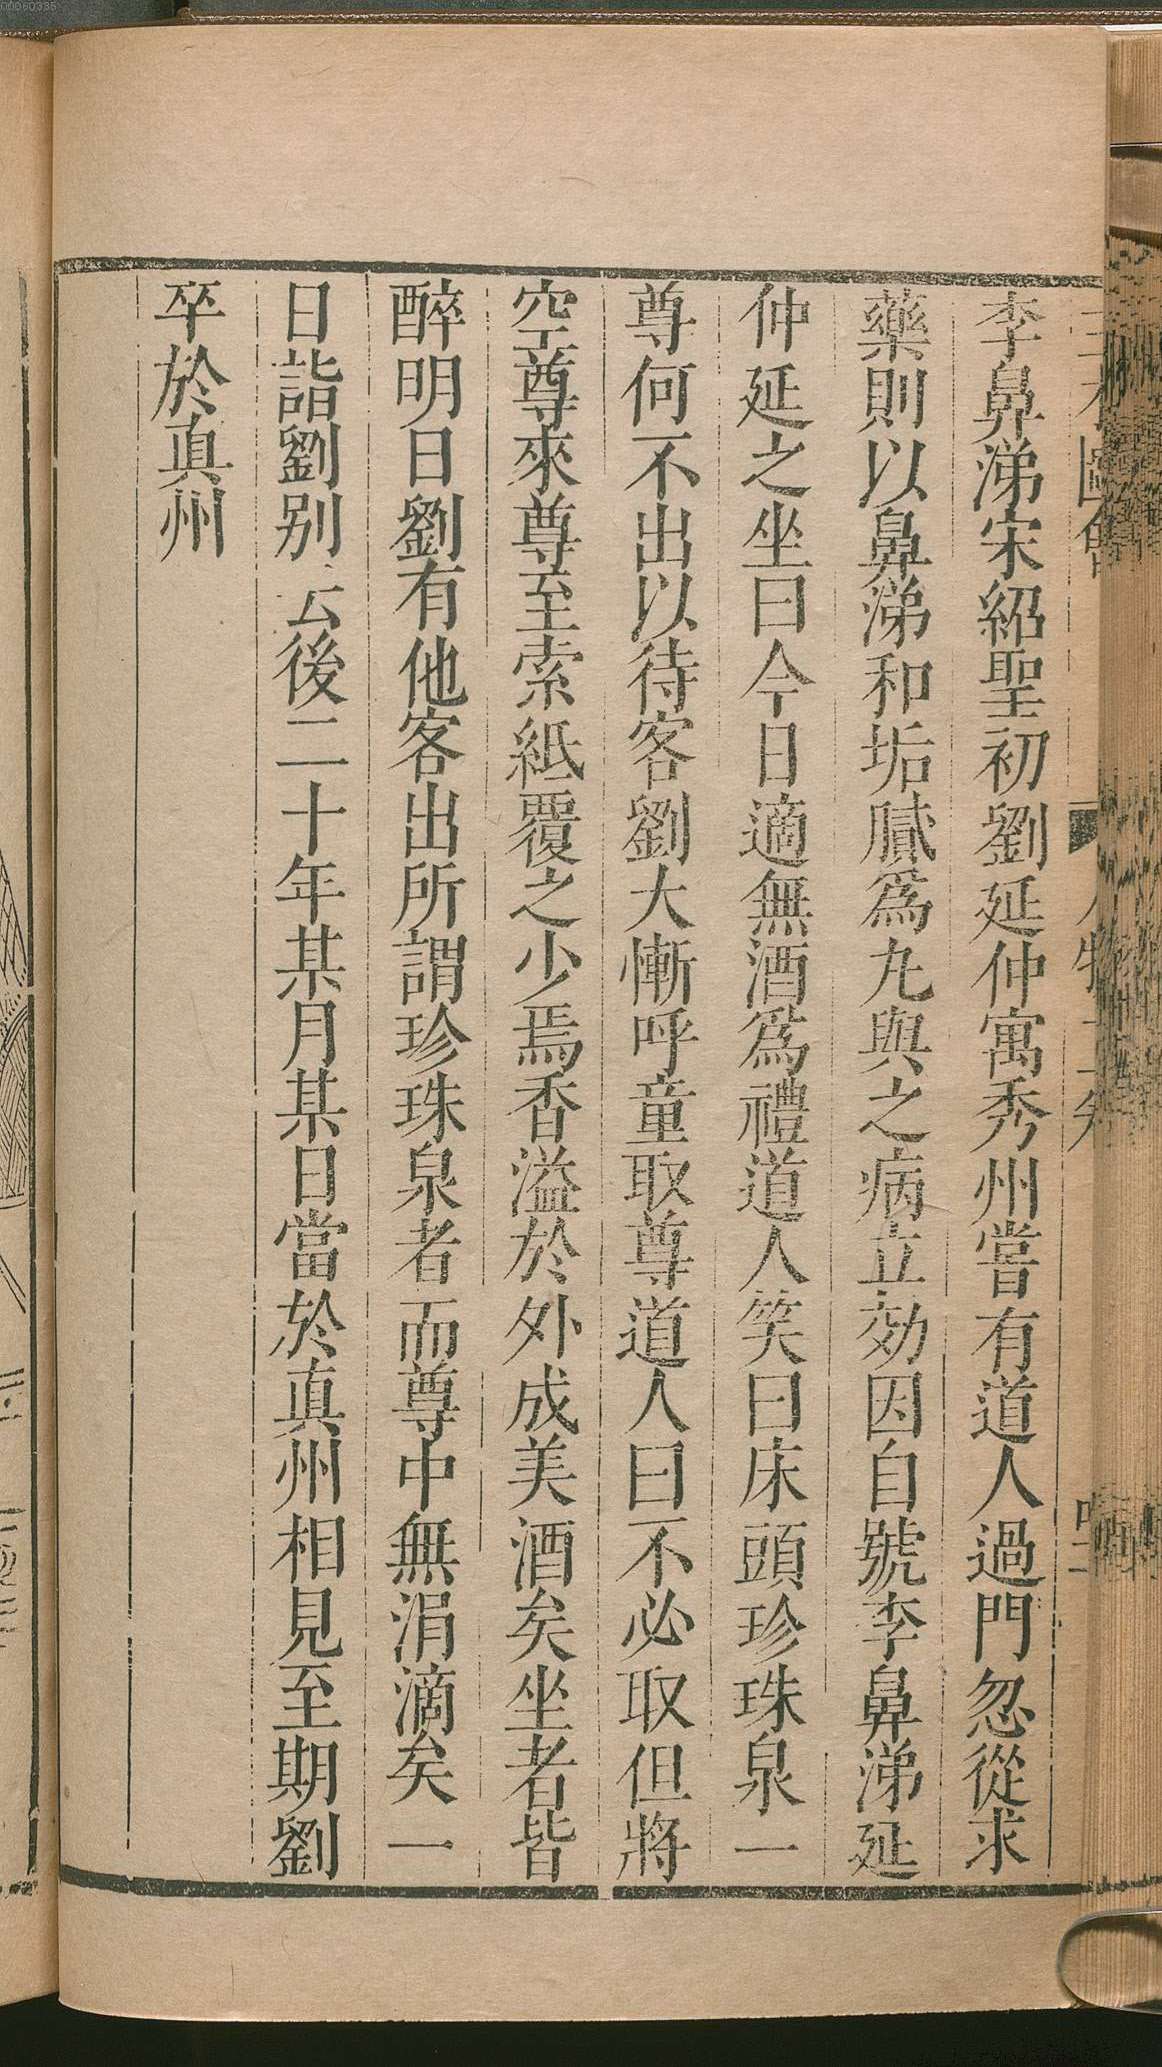 李鼻涕宋紹聖初劉延仲寓秀州嘗有道人過門忽從求
藥則以鼻涕和垢膩爲丸與之病立効因自號李鼻涕延
仲延之坐曰今日適無酒爲禮道人笑曰床頭珍珠泉一
尊何不出以待客劉大慚呼童取尊道人曰不必取但將
空尊來尊至索紙覆之少焉香溢於外成美酒矣坐者皆
醉明日劉有他客出所謂珍珠泉者而尊中無涓滴矣一
日詣劉别云後二十年某月某日當於真州相見至期劉
卒於真州
00060335